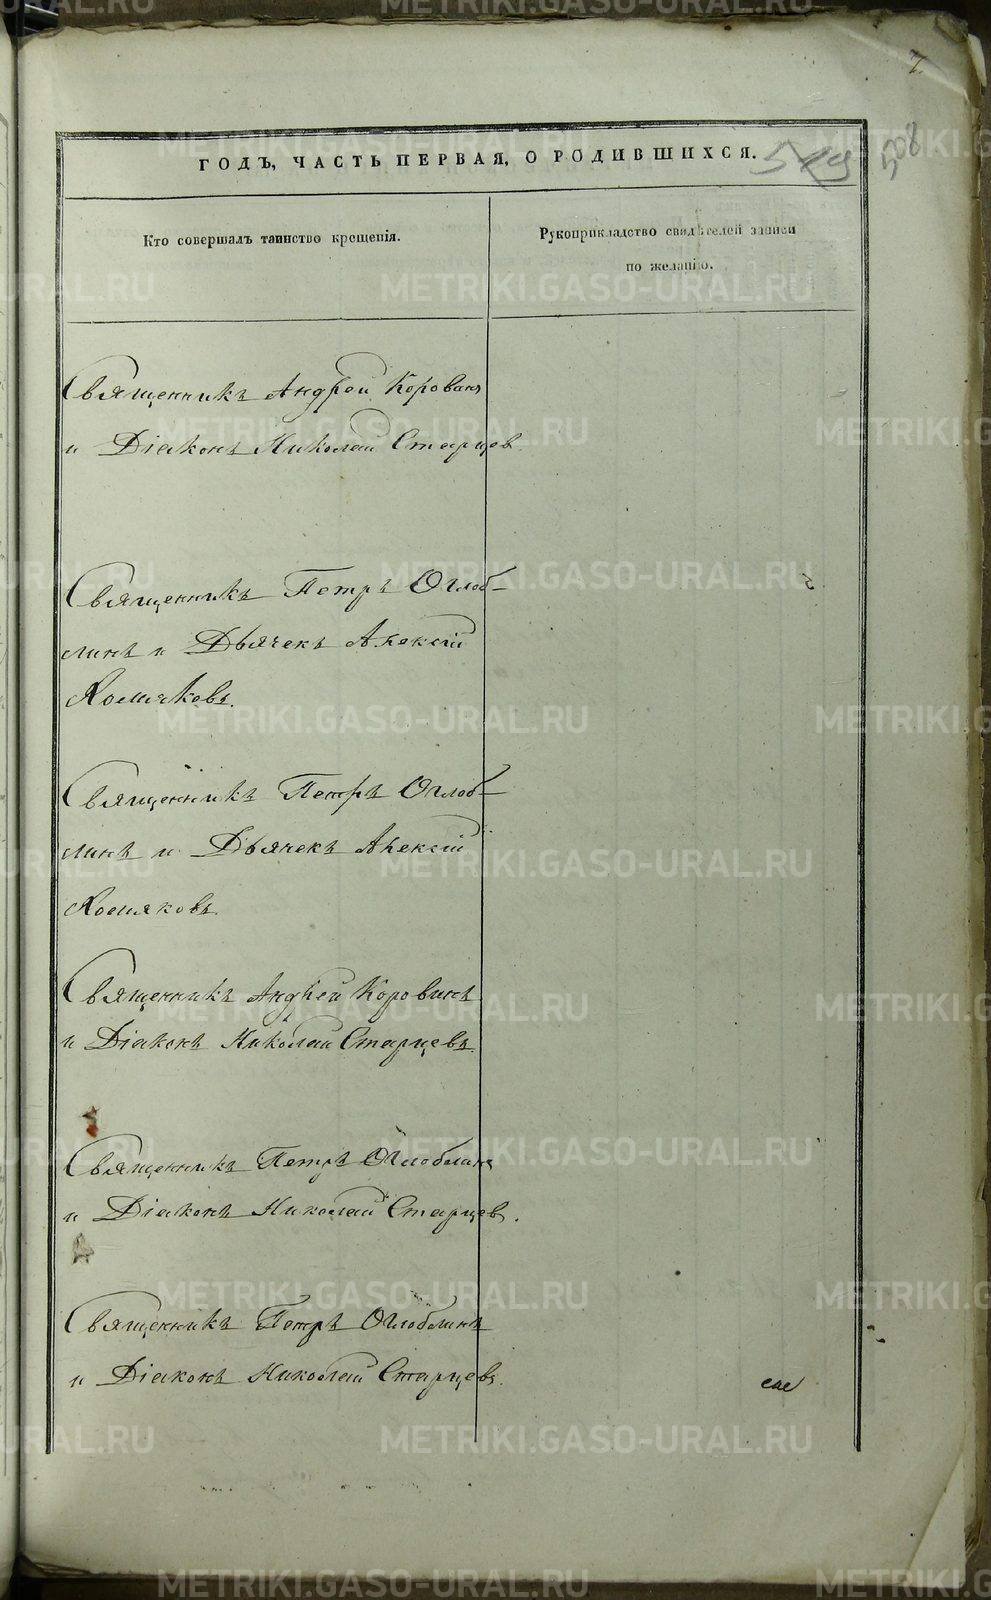 7
ГОДЪ, ЧАСТЬ ПЕРВАЯ, О РОДИВШИХСЯ.
508
Кто совершалъ таинство крещенія.
Рукоприкладство свидѣтелей записи
по желанію.
Священникъ Андрей Коровинъ
и Діаконъ Николай Старцев
Священникъ Петръ Оглоб-
линъ и Дьячекъ Алексій
Хомяковъ.
Священникъ Петръ Оглоб-
линъ и Дьячекъ Алексій
Хомяковъ.
Священникъ Андрей Коровинъ
и Діаконъ Николай Старцевъ.
Священникъ Петръ Оглоблинъ
и Діаконъ Николай Старцев.
Священникъ Петръ Оглоблинъ
и Діаконъ Николай Старцевъ.
METRIKI.GASO-URAL.RU